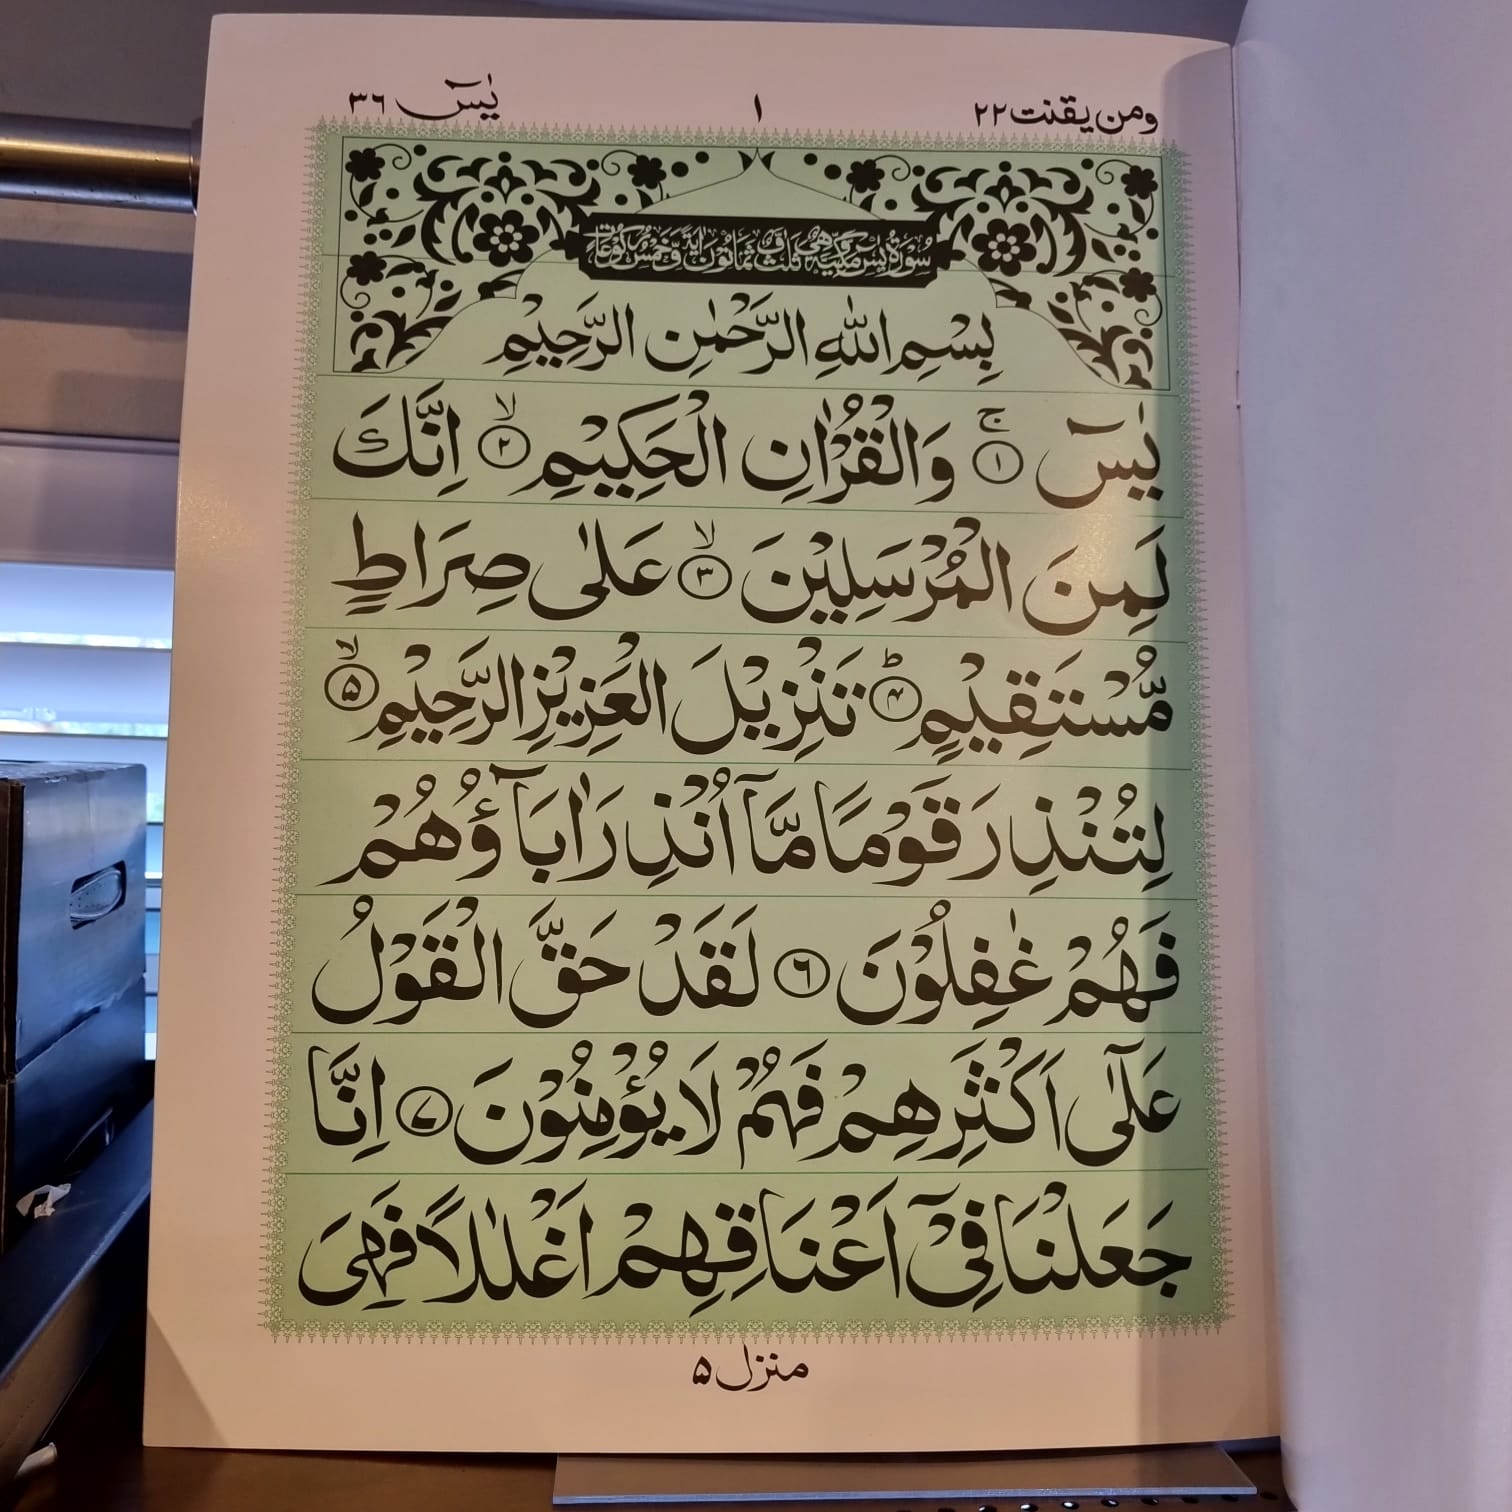 ومن يقنت ٢٢
١
يٰسٓ ٣٦
سُوْرَةُ يٰسٓ مَكِّيَّةٌ وَّهِيَ ثَلٰثٌ وَّ ثَمَانُوْنَ اٰيَةً وَّخَمْسُ رُكُوْعَاتٍ
بِسْمِ اللّٰهِ الرَّحْمٰنِ الرَّحِيْمِ
يٰسٓ ۚ ﴿١﴾ وَالْقُرْاٰنِ الْحَكِيْمِ ۙ ﴿٢﴾ اِنَّكَ
لَمِنَ الْمُرْسَلِيْنَ ۙ ﴿٣﴾ عَلٰى صِرَاطٍ
مُّسْتَقِيْمٍ ؕ ﴿۴﴾ تَنْزِيْلَ الْعَزِيْزِ الرَّحِيْمِ ۙ ﴿۵﴾
لِتُنْذِرَ قَوْمًا مَّاۤ اُنْذِرَ اٰبَآؤُهُمْ
فَهُمْ غٰفِلُوْنَ ﴿٦﴾ لَقَدْ حَقَّ الْقَوْلُ
عَلٰٓى اَكْثَرِهِمْ فَهُمْ لَا يُؤْمِنُوْنَ ﴿۷﴾ اِنَّا
جَعَلْنَا فِيْۤ اَعْنَاقِهِمْ اَغْلٰلًا فَهِيَ
منزل ۵